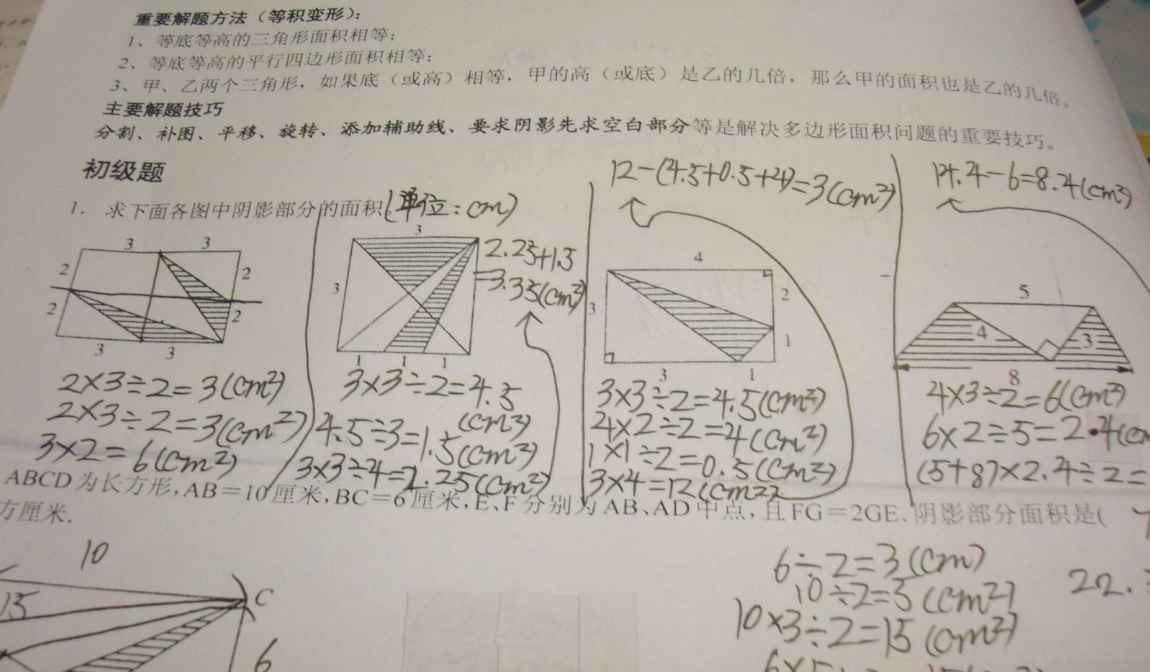 重要解题方法（等积变形）：
1、等底等高的三角形面积相等；
2、等底等高的平行四边形面积相等；
3、甲、乙两个三角形，如果底（或高）相等，甲的高（或底）是乙的几倍，那么甲的面积也是乙的几倍。
主要解题技巧
分割、补图、平移、旋转、添加辅助线、要求阴影先求空白部分等是解决多边形面积问题的重要技巧。
初级题
12-(4.5+0.5+4)=3(cm²)
14.4-6=8.4(cm²)
1. 求下面各图中阴影部分的面积(单位:cm)
3 3
2 2
2 2
3 3
3
3
1 1 1
2.25+1.5
=3.35(cm²)
4
3 2
1
3 1
5
4 3
8
2×3÷2=3(cm²)
2×3÷2=3(cm²)
3×2=6(cm²)
3×3÷2=4.5
(cm²)
4.5÷3=1.5(cm²)
3×3÷4=2.25(cm²)
3×3÷2=4.5(cm²)
4×2÷2=4(cm²)
1×1÷2=0.5(cm²)
3×4=12(cm²)
4×3÷2=6(cm²)
6×2÷5=2.4(cm
(5+8)×2.4÷2=
ABCD为长方形,AB=10厘米,BC=6厘米,E、F分别为AB、AD中点,且FG=2GE.阴影部分面积是(
方厘米.
10
15
C
6
6÷2=3(cm)
10÷2=5(cm²)
10×3÷2=15(cm²)
22.